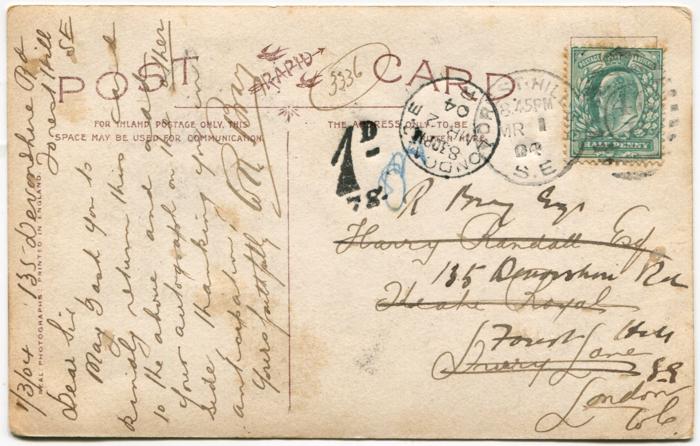 POST CARD
RAPID
3336
FOR INLAND POSTAGE ONLY, THIS
SPACE MAY BE USED FOR COMMUNICATION.
THE ADDRESS ONLY TO BE
REAL PHOTOGRAPHS. PRINTED IN ENGLAND.
1/3/04 135 Devonshire Rd
Forest Hill
SE
Dear Sir
May I ask you to
kindly return this card
to the above and add
your autograph on other
side thanking you in
anticipation,
Yours faithfully
R Bray
1D
78
LONDON
8.30PM
04
FOREST HILL
8.45PM
MR 1
04
S.E
HALF PENNY
R Bray Esq
Harry Randall Esq
135 Devonshire Rd
Theatre Royal
Forest Hill
Drury Lane
S.E
London
W.C.